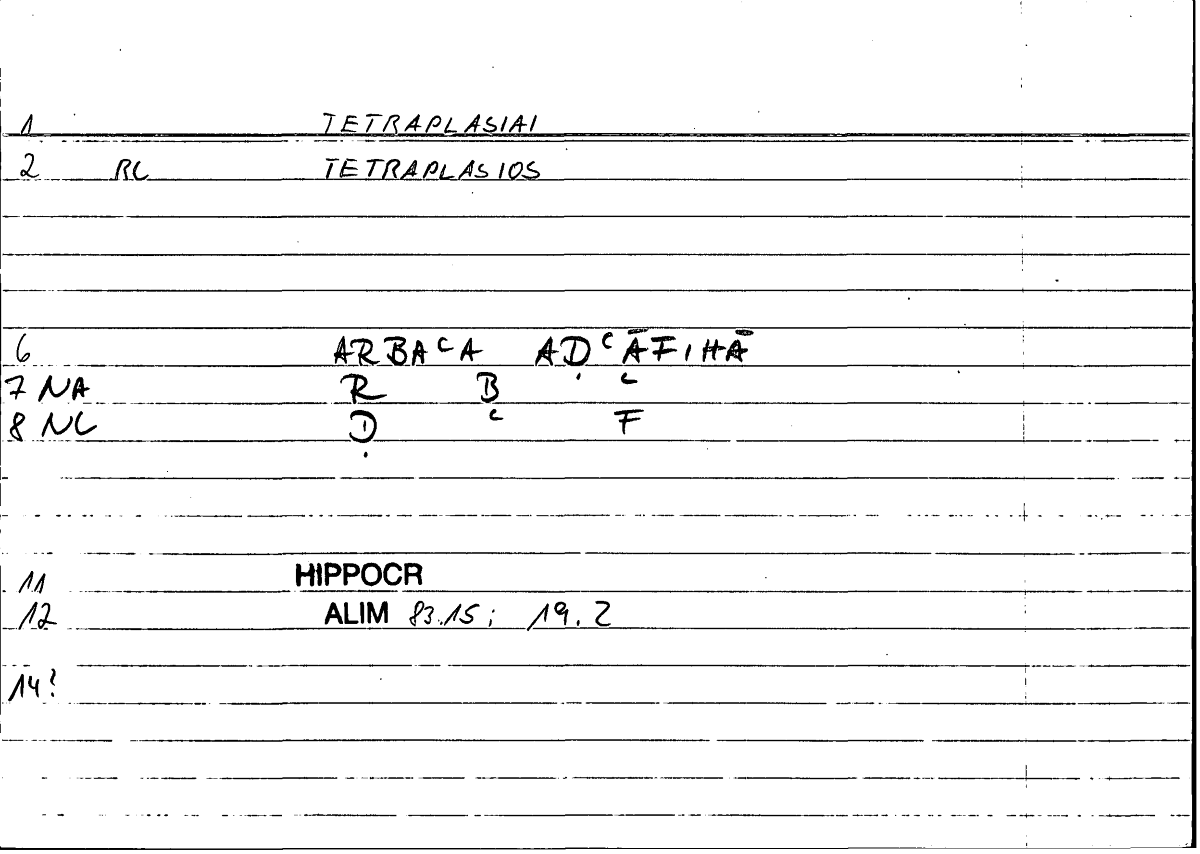 1 TETRAPLASIAI
2 RC TETRAPLASIOS
6 ARBAᶜA AḌᶜĀFIHĀ
7 NA R B ᶜ
8 NC Ḍ ᶜ F
11 HIPPOCR
12 ALIM 83.15; 19.2
14?